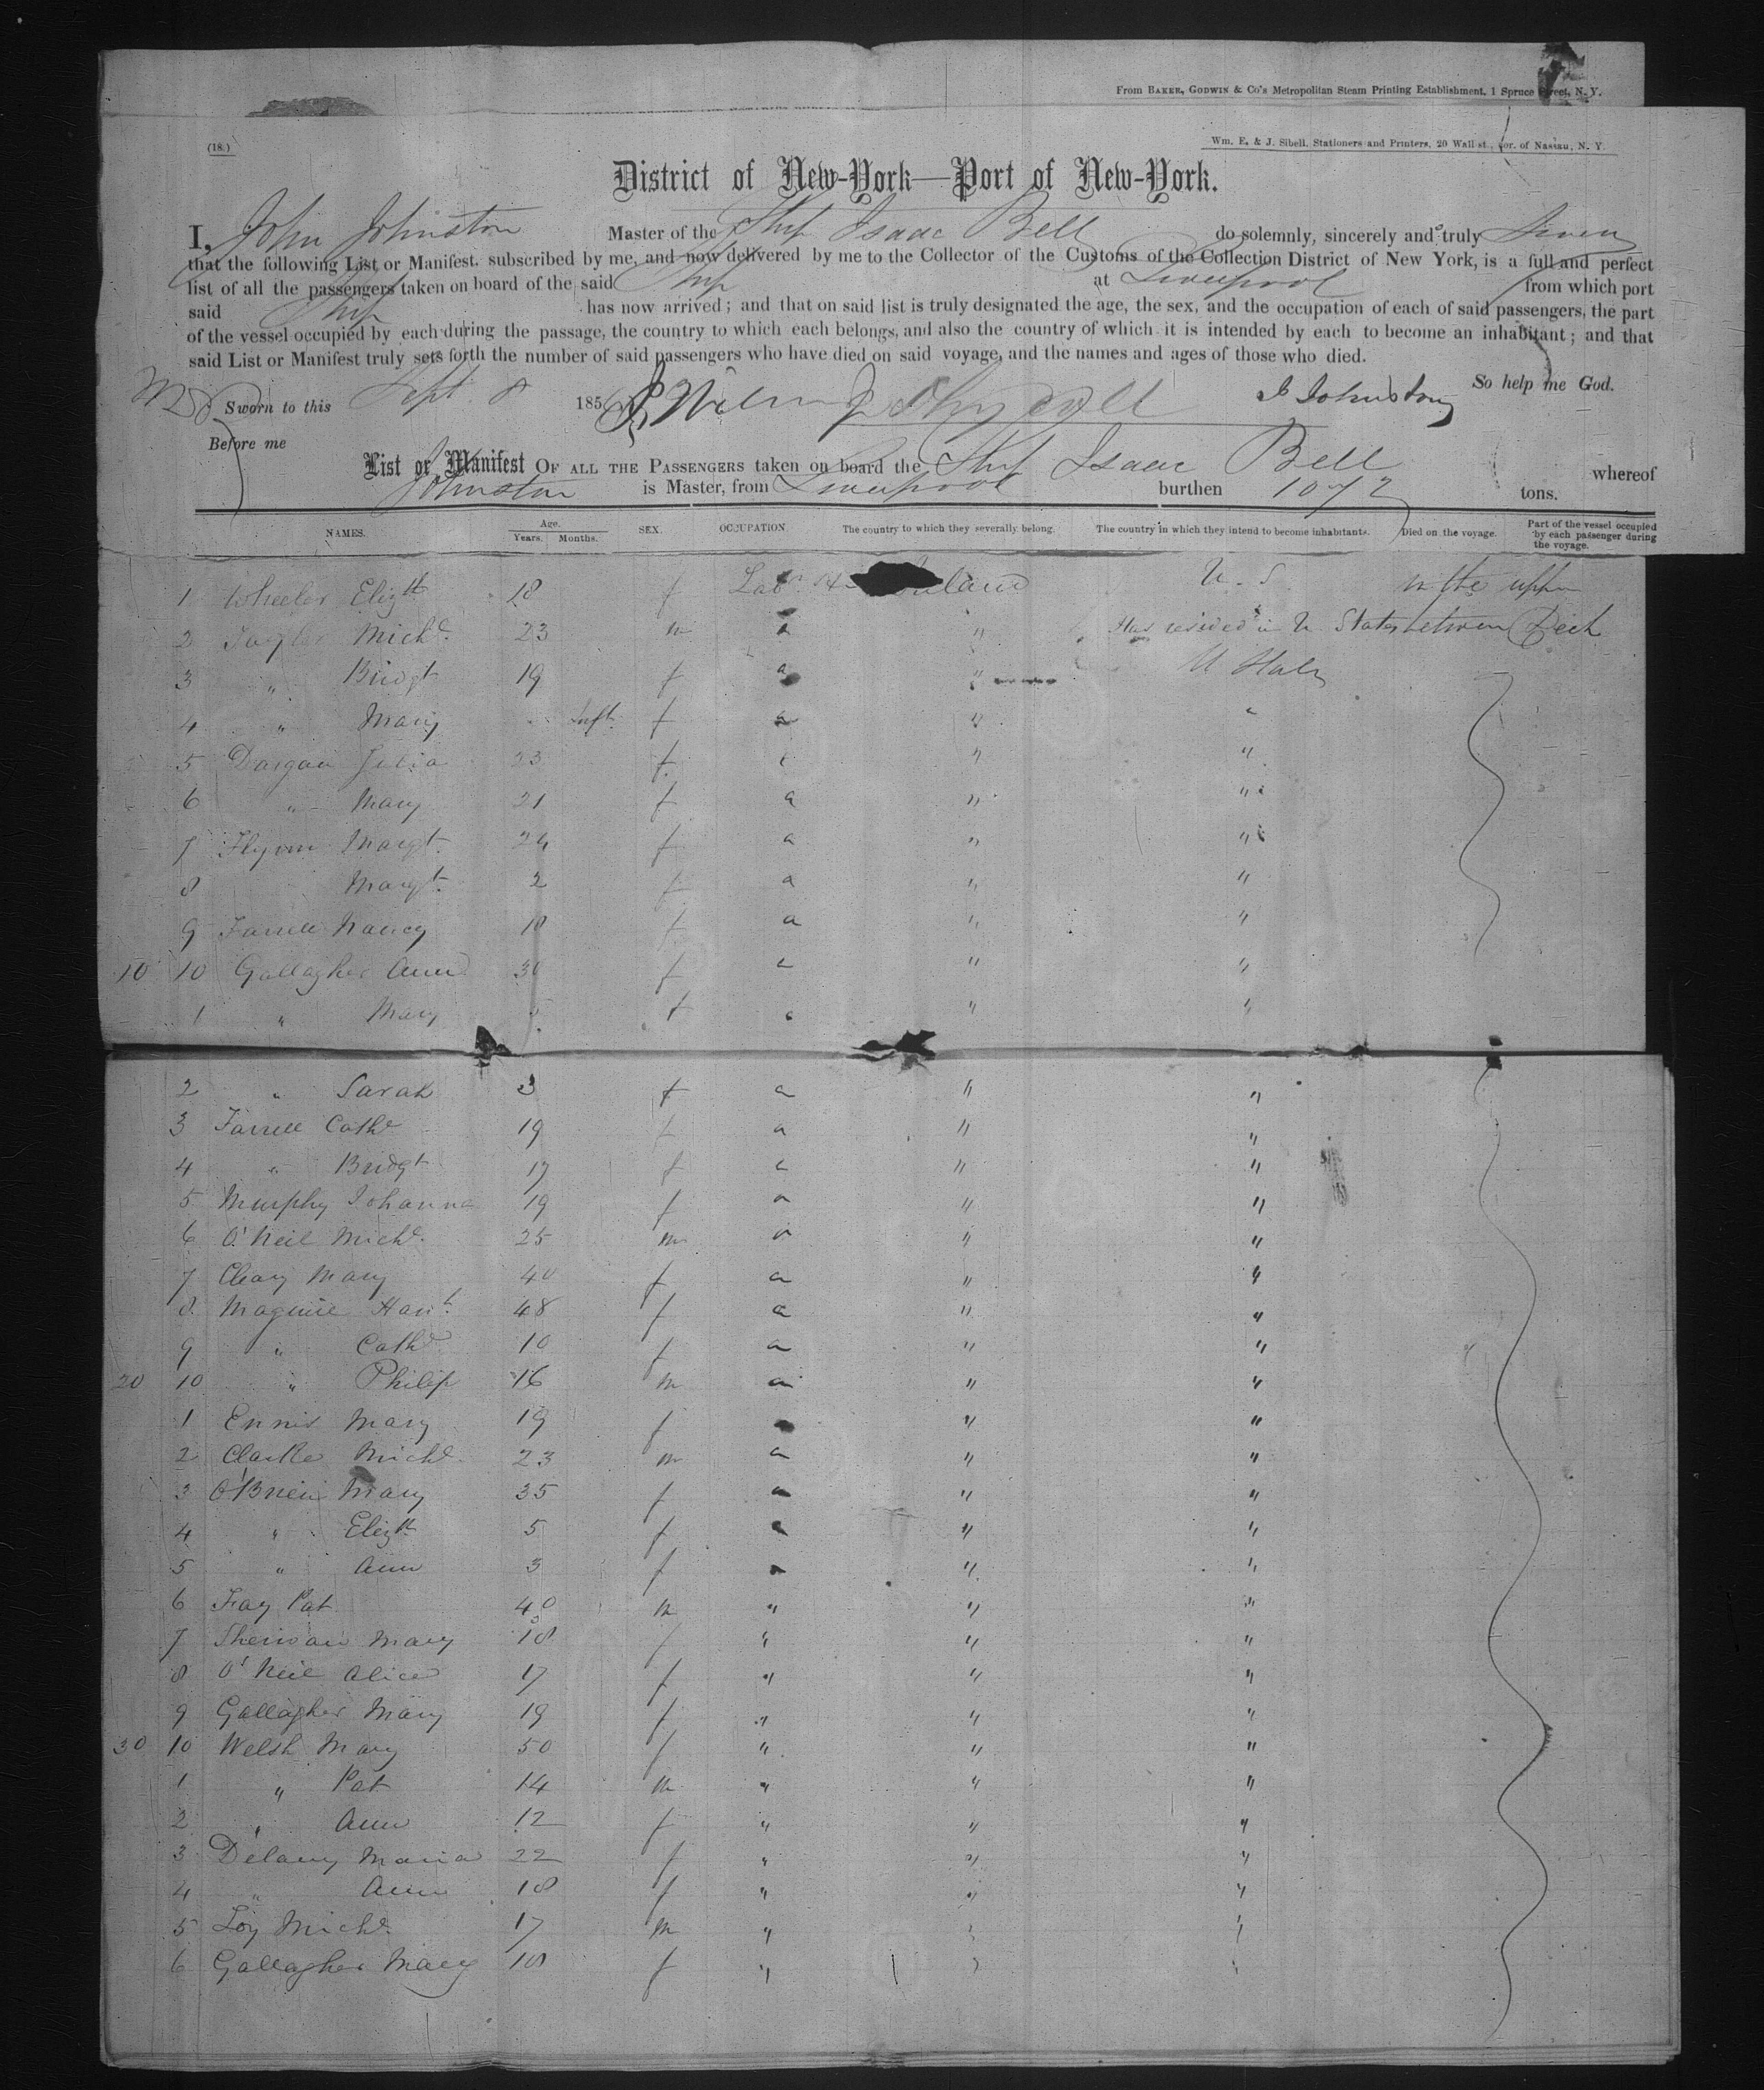 From BAKER, GODWIN & Co's Metropolitan Steam Printing Establishment, 1 Spruce Street, N. Y.
(18.)
Wm. E. & J. Sibell, Stationers and Printers, 20 Wall st., cor. of Nassau, N. Y.
District of New-York—Port of New-York.
I, John Johnston Master of the Ship Isaac Bell do solemnly, sincerely and truly Swear
that the following List or Manifest, subscribed by me, and now delivered by me to the Collector of the Customs of the Collection District of New York, is a full and perfect
list of all the passengers taken on board of the said Ship at Liverpool from which port
said Ship has now arrived; and that on said list is truly designated the age, the sex, and the occupation of each of said passengers, the part
of the vessel occupied by each during the passage, the country to which each belongs, and also the country of which it is intended by each to become an inhabitant; and that
said List or Manifest truly sets forth the number of said passengers who have died on said voyage, and the names and ages of those who died.
So help me God.
Sworn to this Sept. 8 185 J Johnston
Before me
List or Manifest OF ALL THE PASSENGERS taken on board the Ship Isaac Bell whereof
Johnston is Master, from Liverpool burthen 1072 tons.
NAMES. Age. Years. Months. SEX. OCCUPATION. The country to which they severally belong. The country in which they intend to become inhabitants. Died on the voyage. Part of the vessel occupied by each passenger during the voyage.
1 Wheeler Elizth 18 f Labr U. S in the upper
2 Michl 23 m " " Has resided in U States between Deck
3 " Bridgt 19 f " " U States
4 " Mary Inft. f " " "
5 Dargan Julia 23 f " " "
6 " Mary 21 f " " "
7 Flynn Margt. 24 f " " "
8 Margt. 2 f " " "
9 Farrell Nancy 18 f " " "
10 10 Gallagher Ann 30 f " " "
1 " Mary f " " "
2 " Sarah 3 f " " "
3 Farrell Cathe 19 f " " "
4 " Bridgt 17 f " " "
5 Murphy Johanna 19 f " " "
6 O'Neil Michl. 25 m " " "
7 Cleary Mary 40 f " " "
8 Maguire Hant. 48 f " " "
9 " Cathe 10 f " " "
20 10 " Philip 16 m " " "
1 Ennis Mary 19 f " " "
2 Clarke Michl. 23 m " " "
3 O'Brien Mary 35 f " " "
4 " Elizth 5 f " " "
5 " Ann 3 f " " "
6 Fay Pat 40 m " " "
7 Sheridan Mary 18 f " " "
8 O'Neil Alice 17 f " " "
9 Gallagher Mary 19 f " " "
30 10 Welsh Mary 50 f " " "
1 " Pat 14 m " " "
2 " Ann 12 f " " "
3 Delany Maria 22 f " " "
4 " Ann 18 f " " "
5 Michl. 17 m " " "
6 Gallagher Mary 18 f " " "